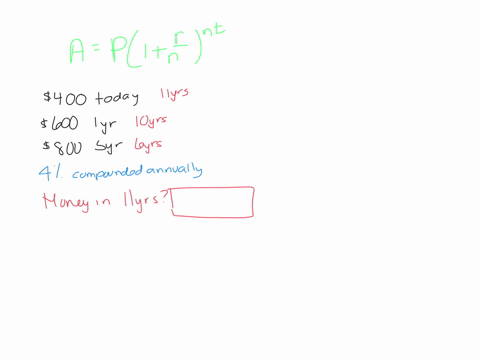 A = P(1 + r/n)^nt
$400 today 11yrs
$600 1yr 10yrs
$800 5yr 6yrs
4% compounded annually
Money in 11yrs?